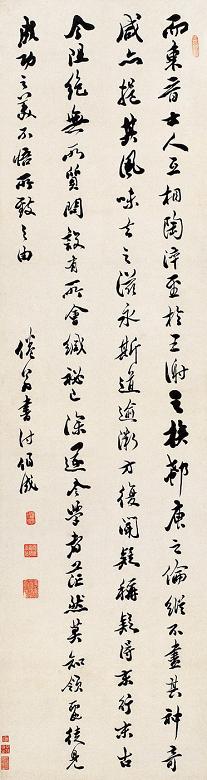 而東晉士人互相陶淬至於王謝之族郗庾之倫縱不盡其神奇
咸亦挹其風味去之滋永斯道逾微方復聞疑稱疑得末行末古
今阻絕無所質問設有所會緘秘已深遂令學者茫然莫知領要徒見
成功之美不悟所致之由
翁書付成